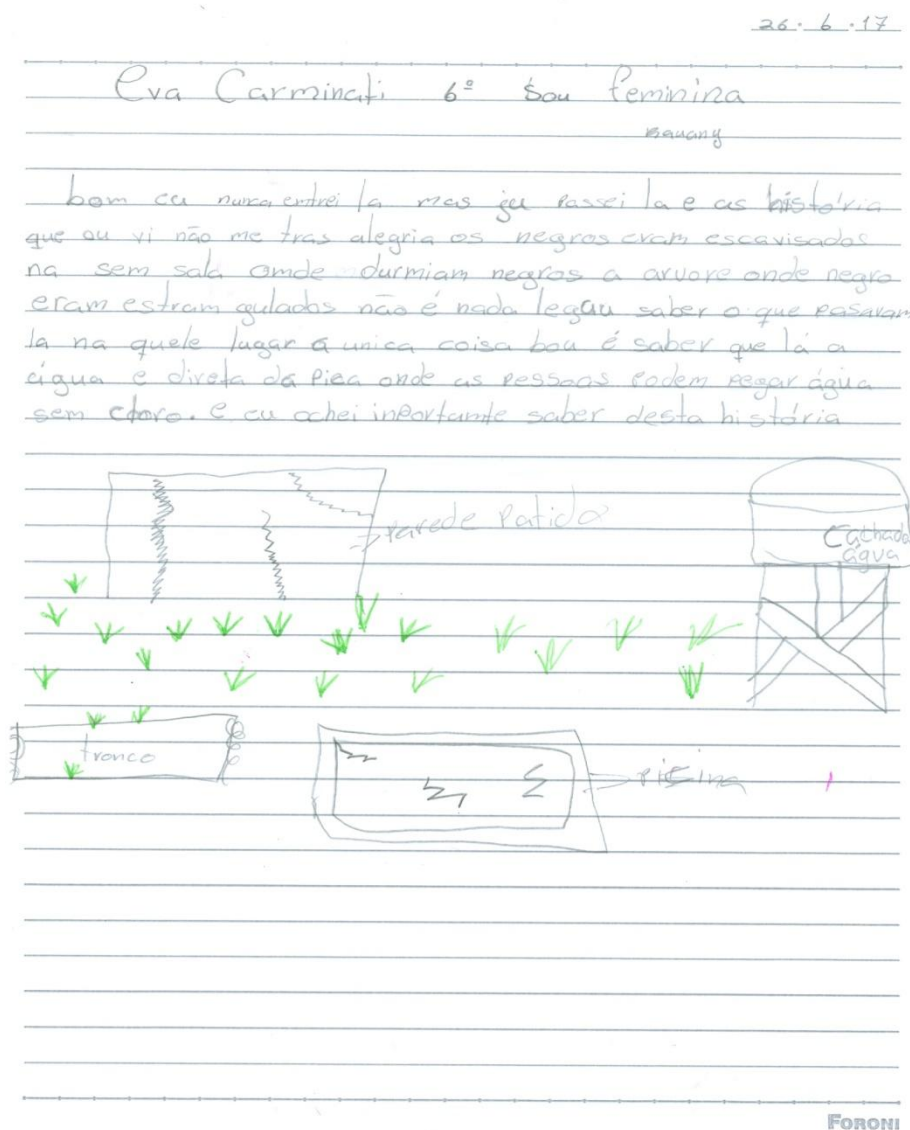 26. 6. 17
Eva Carminati 6º Sou feminina
Rauany
bom eu nunca entrei la mas ja passei la e as história
que ou vi não me tras alegria os negros eram escavisados
na sem sala omde durmiam negros a arvore onde negro
eram estram gulados não é nada legau saber o que pasavam
la na quele lugar a unica coisa bou é saber que lá a
água e direta da Pica onde as pessoas podem pegar água
sem cloro. e eu achei inportamte saber desta história
parede Patida
Cachada
água
tronco
picina
FORONI